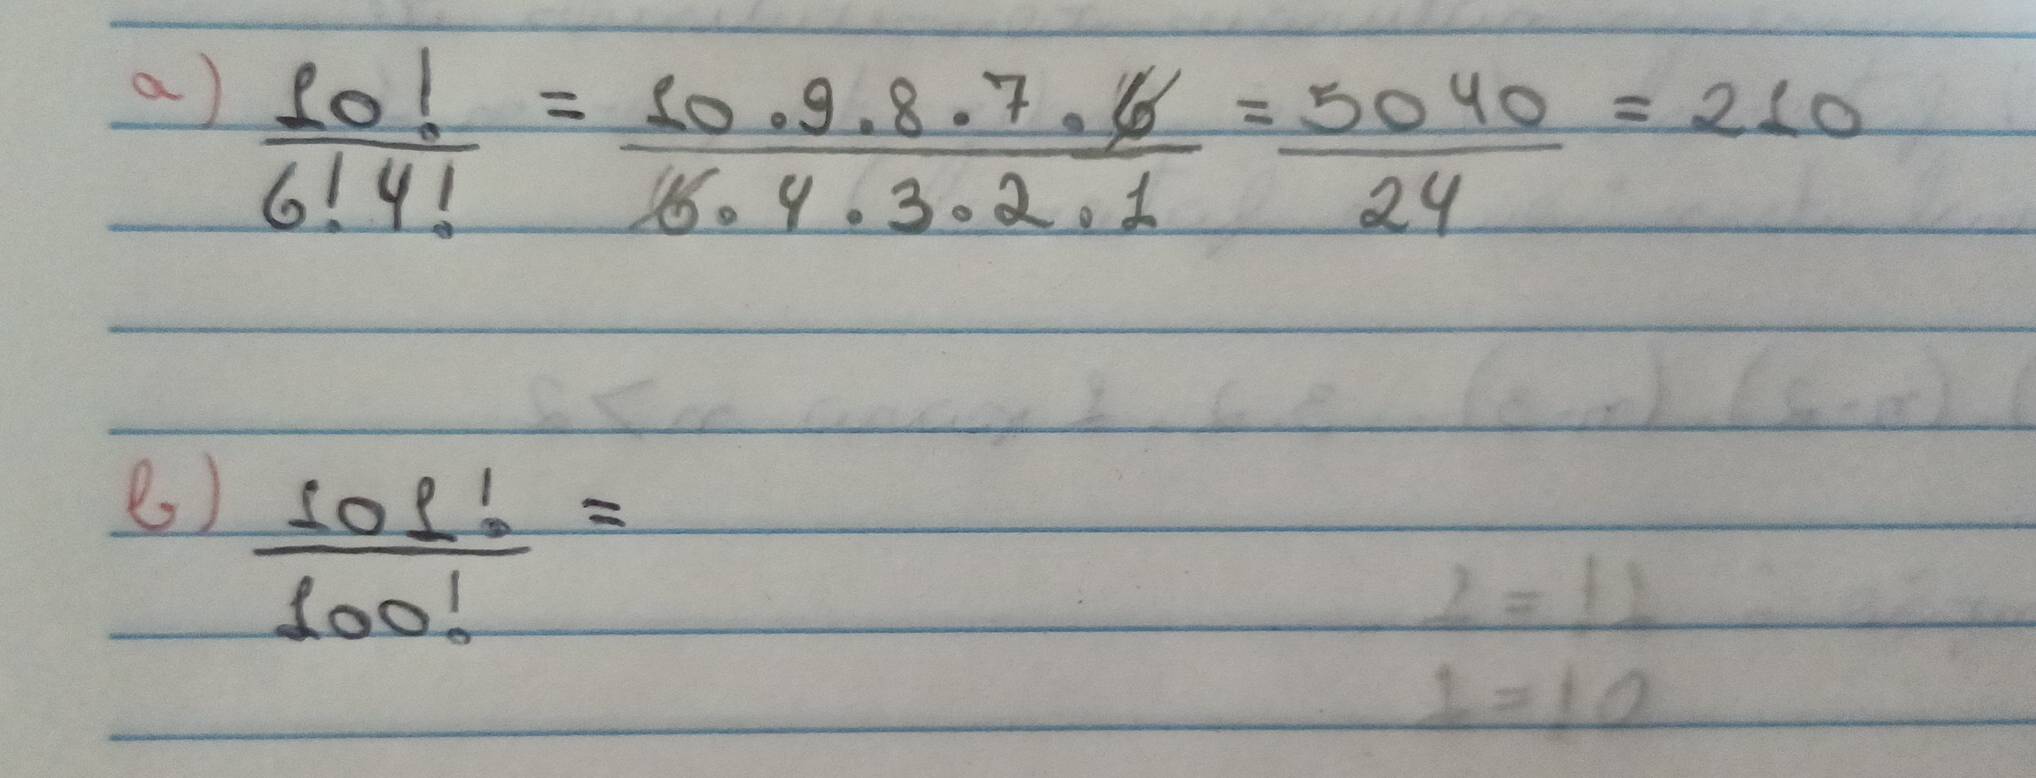 a) 10! / 6!4! = 10.9.8.7.6 / 6.4.3.2.1 = 5040 / 24 = 210
b) 101! / 100! =
1=11
1=10